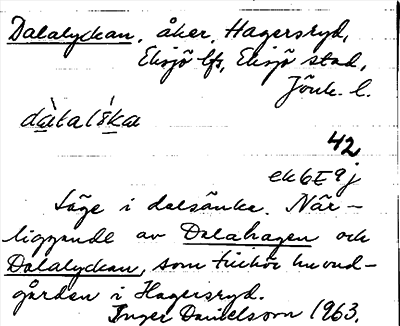 Dalalyckan, åker, Hagersryd,
Eksjö lfs, Eksjö stad,
Jönk. l.
dàtalýka
42
ek6E9j
Läge i dalsänka. När-
liggande av Dalahagen och
Dalalyckan, som tillhör huvud-
gården i Hagersryd.
Inger Danielsson 1963.